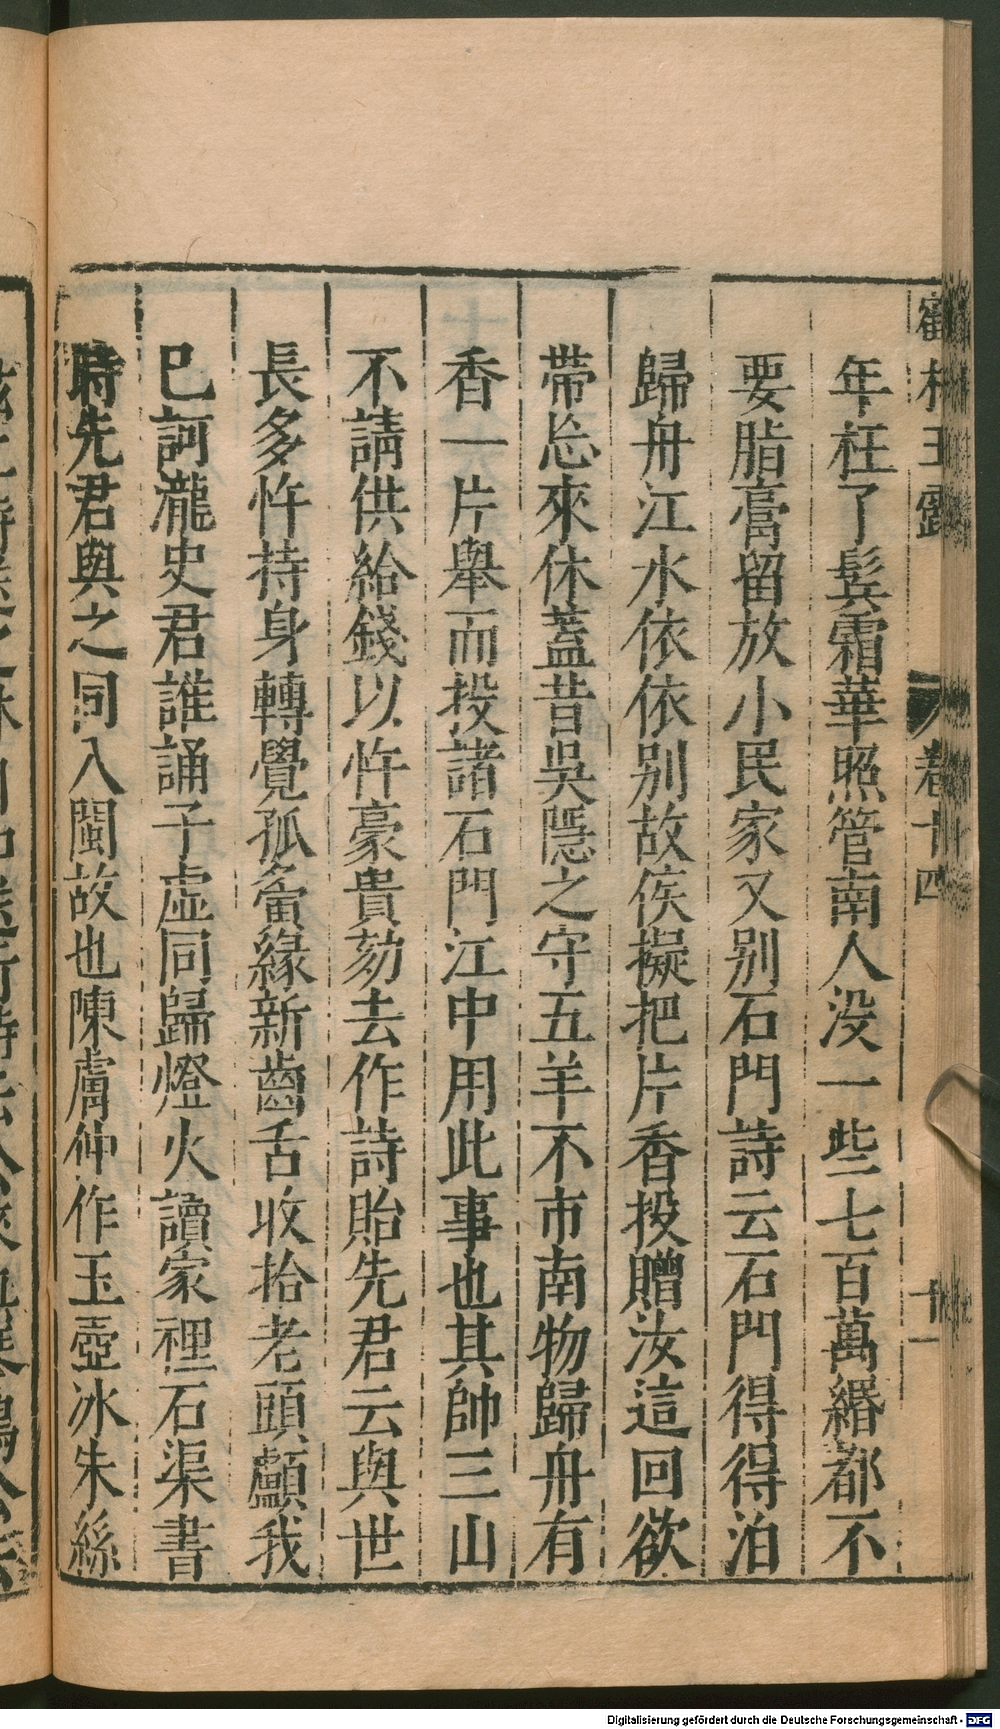 鶴林玉露 卷十四 十一
年枉了鬂霜華照管南人没一些七百萬緡都不
要脂膏留放小民家又别石門詩云石門得得泊
歸舟江水依依别故侯擬把片香投贈汝這回欲
帶忘來休葢昔吳隱之守五羊不市南物歸舟有
香一片舉而投諸石門江中用此事也其帥三山
不請供給錢以忤豪貴劾去作詩貽先君云與世
長多忤持身轉覺孤𡖖緣新齒舌收拾老頭顱我
巳訶瀧史君誰誦子虛同歸燈火讀家裡石渠書
時先君與之同入閩故也陳膚仲作玉壺冰朱絲